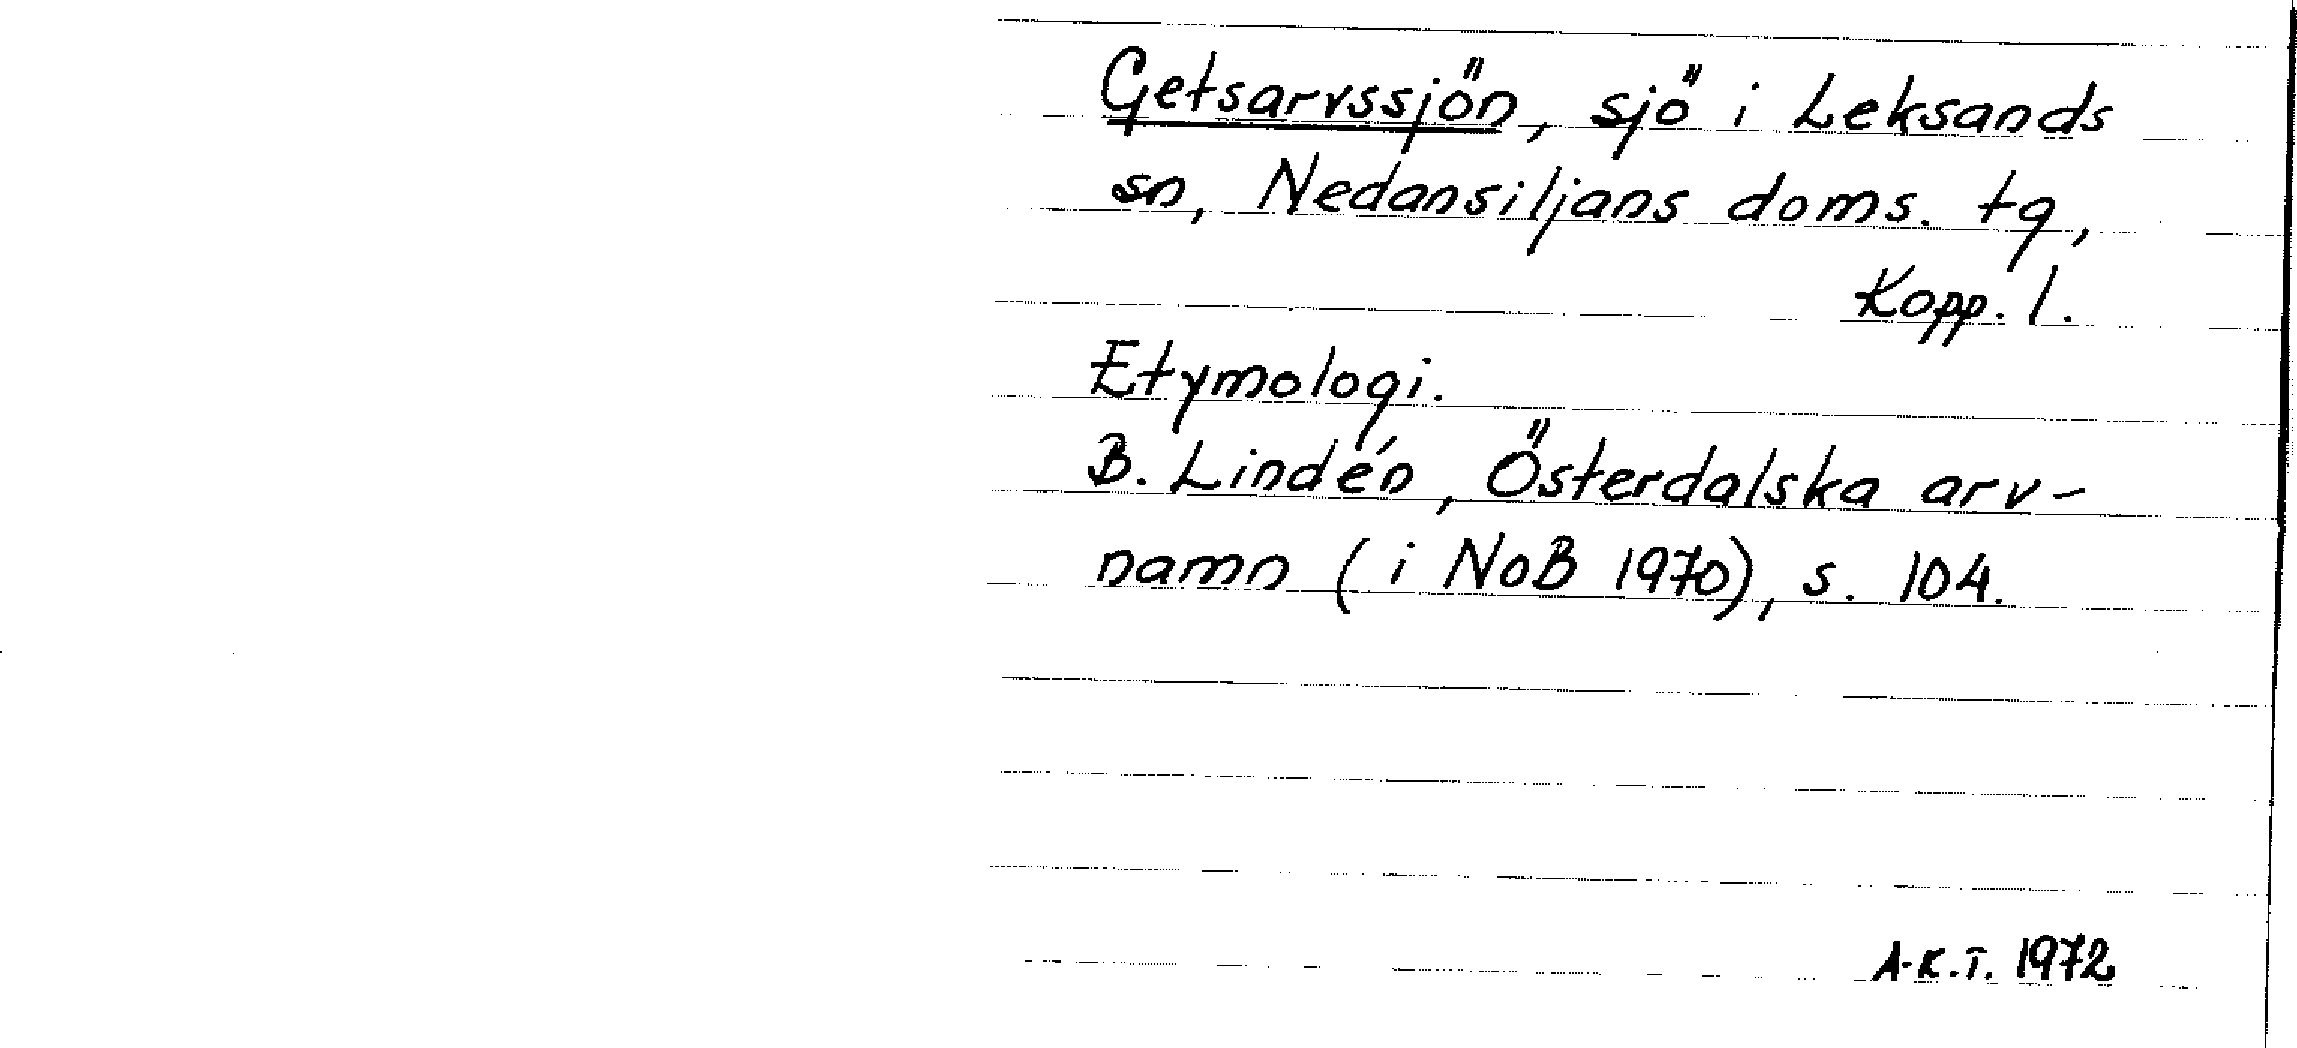 Getsarvssjön, sjö i Leksands
sn, Nedansiljans doms. tg,
Kopp. l.
Etymologi.
B. Lindén, Österdalska arv-
namn (i NoB 1970), s. 104.
A-K.T. 1972